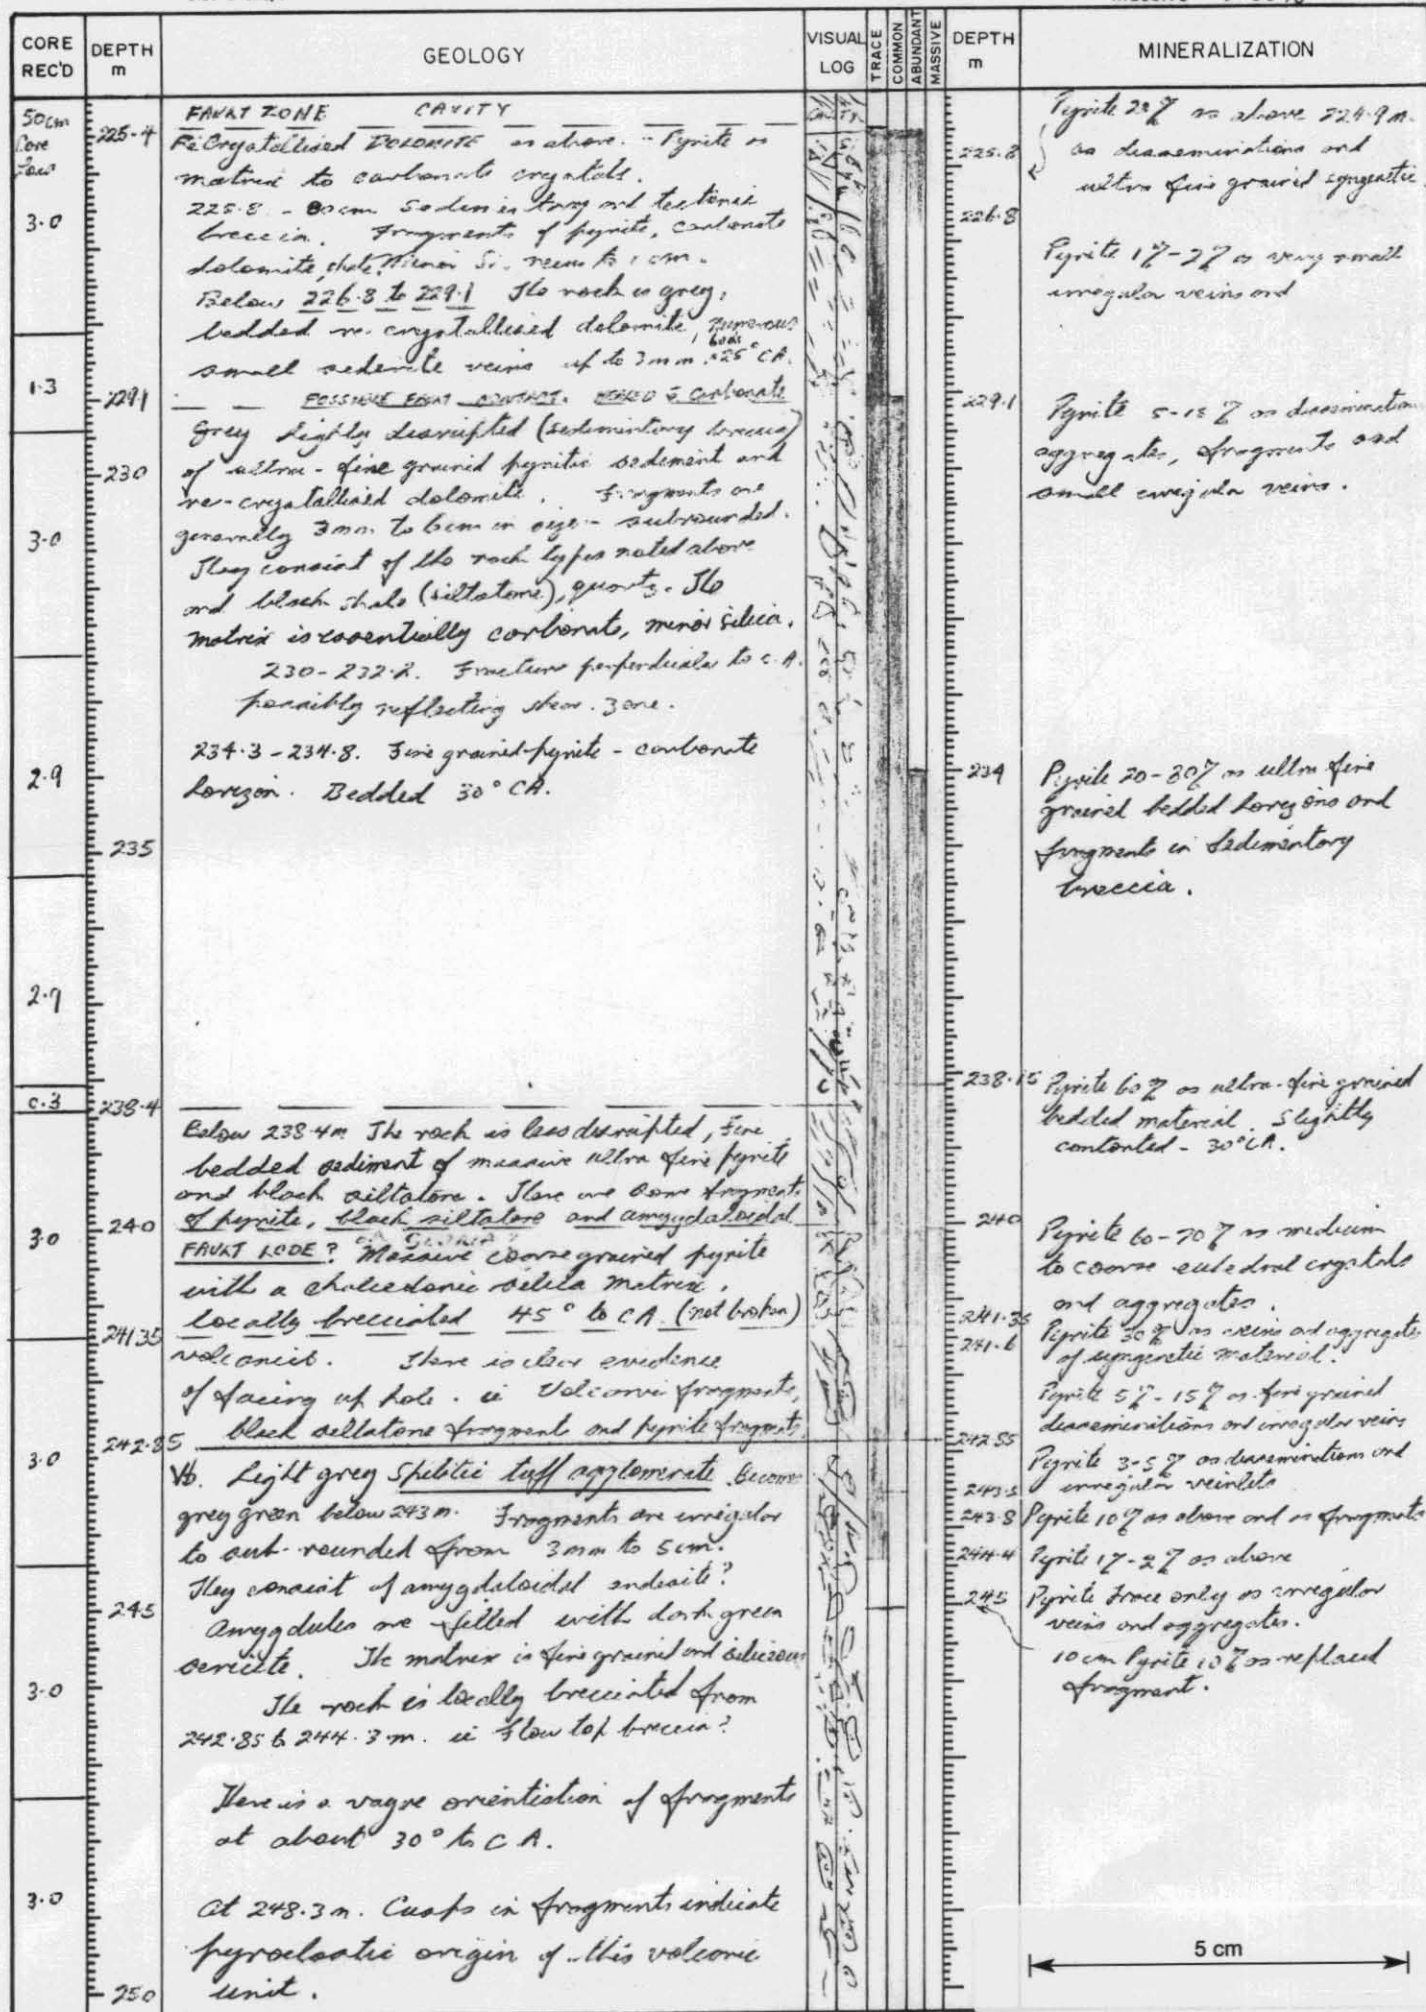 CORE REC'D
DEPTH m
GEOLOGY
VISUAL LOG
TRACE
COMMON
ABUNDANT
MASSIVE
DEPTH m
MINERALIZATION
50cm
Core
3.0
1.3
3.0
2.9
2.9
0.3
3.0
3.0
3.0
3.0
225.4
229.1
230
235
238.4
240
241.35
242.85
245
250
FAULT ZONE CAVITY
Re Crystallised DOLOMITE as above. - Pyrite as
matrix to carbonate crystals.
225.8 - 80cm Sedimentary and tectonic
breccia. Fragments of pyrite, carbonate
dolomite, shale, Minor Si. veins to 1 cm.
Below 226.8 to 229.1 The rock is grey,
bedded re-crystallised dolomite, numerous
small siderite veins up to 3mm. 25° CA.
POSSIBLE FAULT CONTACT. HEALED Carbonate
Grey highly disrupted (sedimentary breccia)
of ultra-fine grained pyritic sediment and
re-crystallised dolomite. Fragments are
generally 3mm to 6cm in size - subrounded.
They consist of the rock types noted above
and black shale (siltstone), quartz. The
matrix is essentially carbonate, minor silica.
230-232.2. Fracture perpendicular to C.A.
possibly reflecting shear zone.
234.3-234.8. Fine grained pyrite - carbonate
horizon. Bedded 30° CA.
Below 238.4m The rock is less disrupted, Fine
bedded sediment of massive ultra fine pyrite
and black siltstone. There are some fragments
of pyrite, black siltstone and amygdaloidal
FAULT LODE? Massive coarse grained pyrite
with a chalcedonic silica matrix.
locally brecciated 45° to CA (not broken)
volcanics. There is clear evidence
of facing up hole. ie Volcanic fragments,
black siltstone fragments and pyrite fragments.
Vb. Light grey Spilitic tuff agglomerate. Becomes
grey green below 243m. Fragments are irregular
to sub-rounded from 3mm to 5cm.
They consist of amygdaloidal andesite?
Amygdules are filled with dark green
sericite. The matrix is fine grained and siliceous
The rock is locally brecciated from
242.85 to 244.3m. ie Flow top breccia?
There is a vague orientation of fragments
at about 30° to CA.
At 248.3m. Cusps in fragments indicate
pyroclastic origin of this volcanic
unit.
225.8
226.8
229.1
234
238.15
240
241.35
241.6
242.85
243.5
243.8
244.4
245
Pyrite as above 224.9m.
as disseminations and
ultra fine grained syngenetic
Pyrite 1%-2% as very small
irregular veins and
Pyrite 5-15% as disseminations
aggregates, fragments and
small irregular veins.
Pyrite 20-30% as ultra fine
grained bedded horizons and
fragments in Sedimentary
breccia.
Pyrite 60% as ultra-fine grained
bedded material. Slightly
contorted - 30° CA.
Pyrite 60-70% as medium
to coarse euhedral crystals
and aggregates.
Pyrite 30% as veins and aggregates
of syngenetic material.
Pyrite 5%-15% as fine grained
disseminations and irregular veins
Pyrite 3-5% as disseminations and
irregular veinlets
Pyrite 10% as above and as fragments
Pyrite 1%-2% as above
Pyrite Trace only as irregular
veins and aggregates.
10cm Pyrite 10% as replaced
fragment.
5 cm